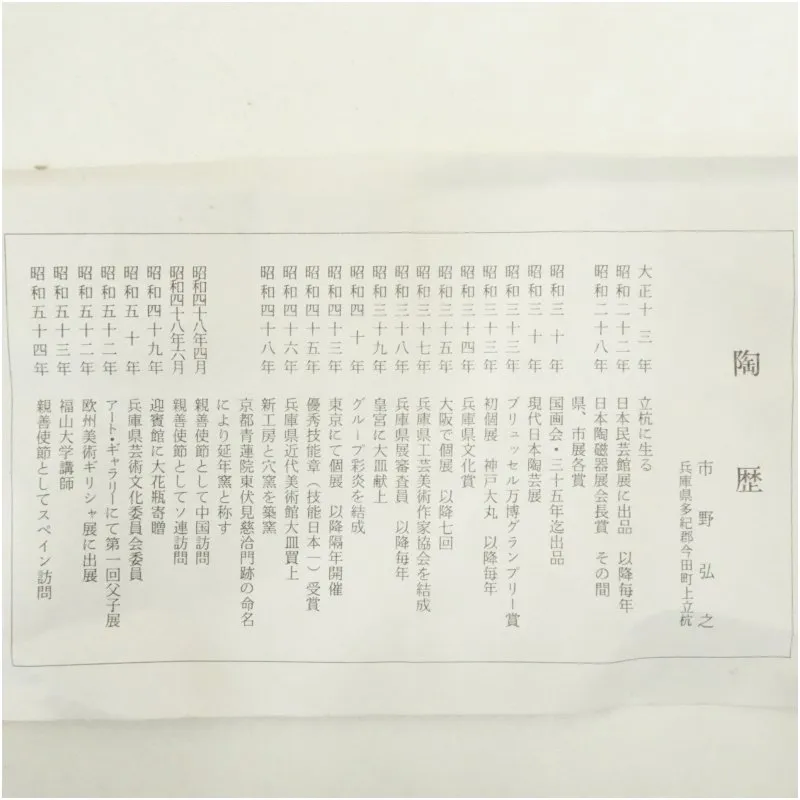 陶歴
市野弘之
兵庫県多紀郡今田町上立杭
大正十三年 立杭に生る
昭和二十二年 日本民芸館展に出品 以降毎年
昭和二十八年 日本陶磁器展会長賞 その間
県、市展各賞
昭和三十年 国画会・三十五年迄出品
昭和三十年 現代日本陶芸展
昭和三十三年 ブリュッセル万博グランプリー賞
昭和三十三年 初個展 神戸大丸 以降毎年
昭和三十四年 兵庫県文化賞
昭和三十五年 大阪で個展 以降七回
昭和三十七年 兵庫県工芸美術作家協会を結成
昭和三十八年 兵庫県展審査員 以降毎年
昭和三十九年 皇宮に大皿献上
昭和四十年 グループ彩炎を結成
昭和四十三年 東京にて個展 以降隔年開催
昭和四十五年 優秀技能章（技能日本一）受賞
昭和四十六年 兵庫県近代美術館大皿買上
昭和四十八年 新工房と穴窯を築窯
京都青蓮院東伏見慈洽門跡の命名
により延年窯と称す
昭和四十八年四月 親善使節として中国訪問
昭和四十八年六月 親善使節としてソ連訪問
昭和四十九年 迎賓館に大花瓶寄贈
昭和五十年 兵庫県芸術文化委員会委員
昭和五十二年 アート・ギャラリーにて第一回父子展
昭和五十二年 欧州美術ギリシャ展に出展
昭和五十三年 福山大学講師
昭和五十四年 親善使節としてスペイン訪問